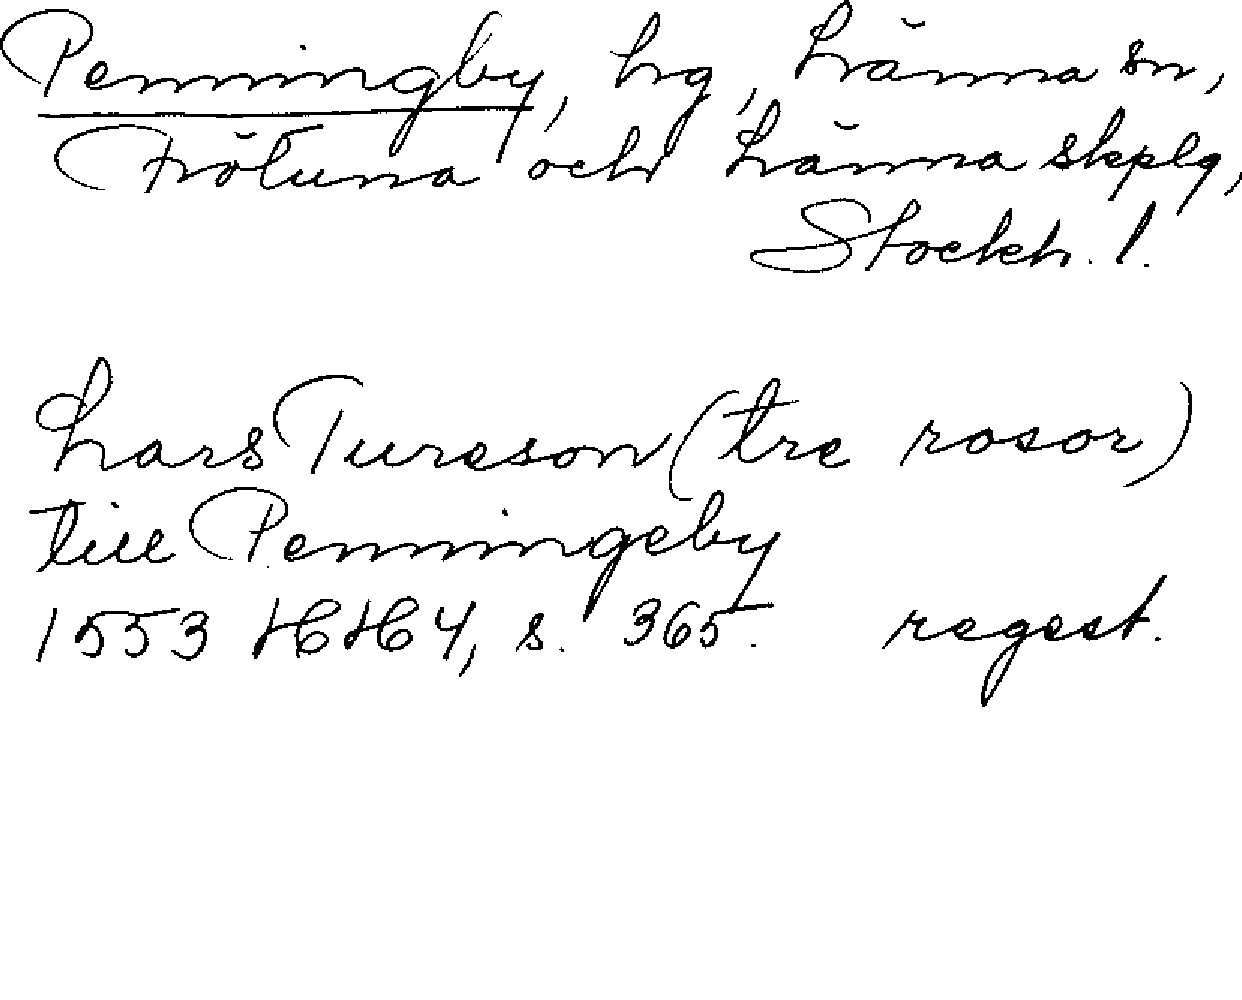 Penningby, hg, Länna sn,
Frötuna och Länna skplg,
Stockh. l.
Lars Tureson (tre rosor)
till Penningeby
1553 HH 4, s. 365. regest.